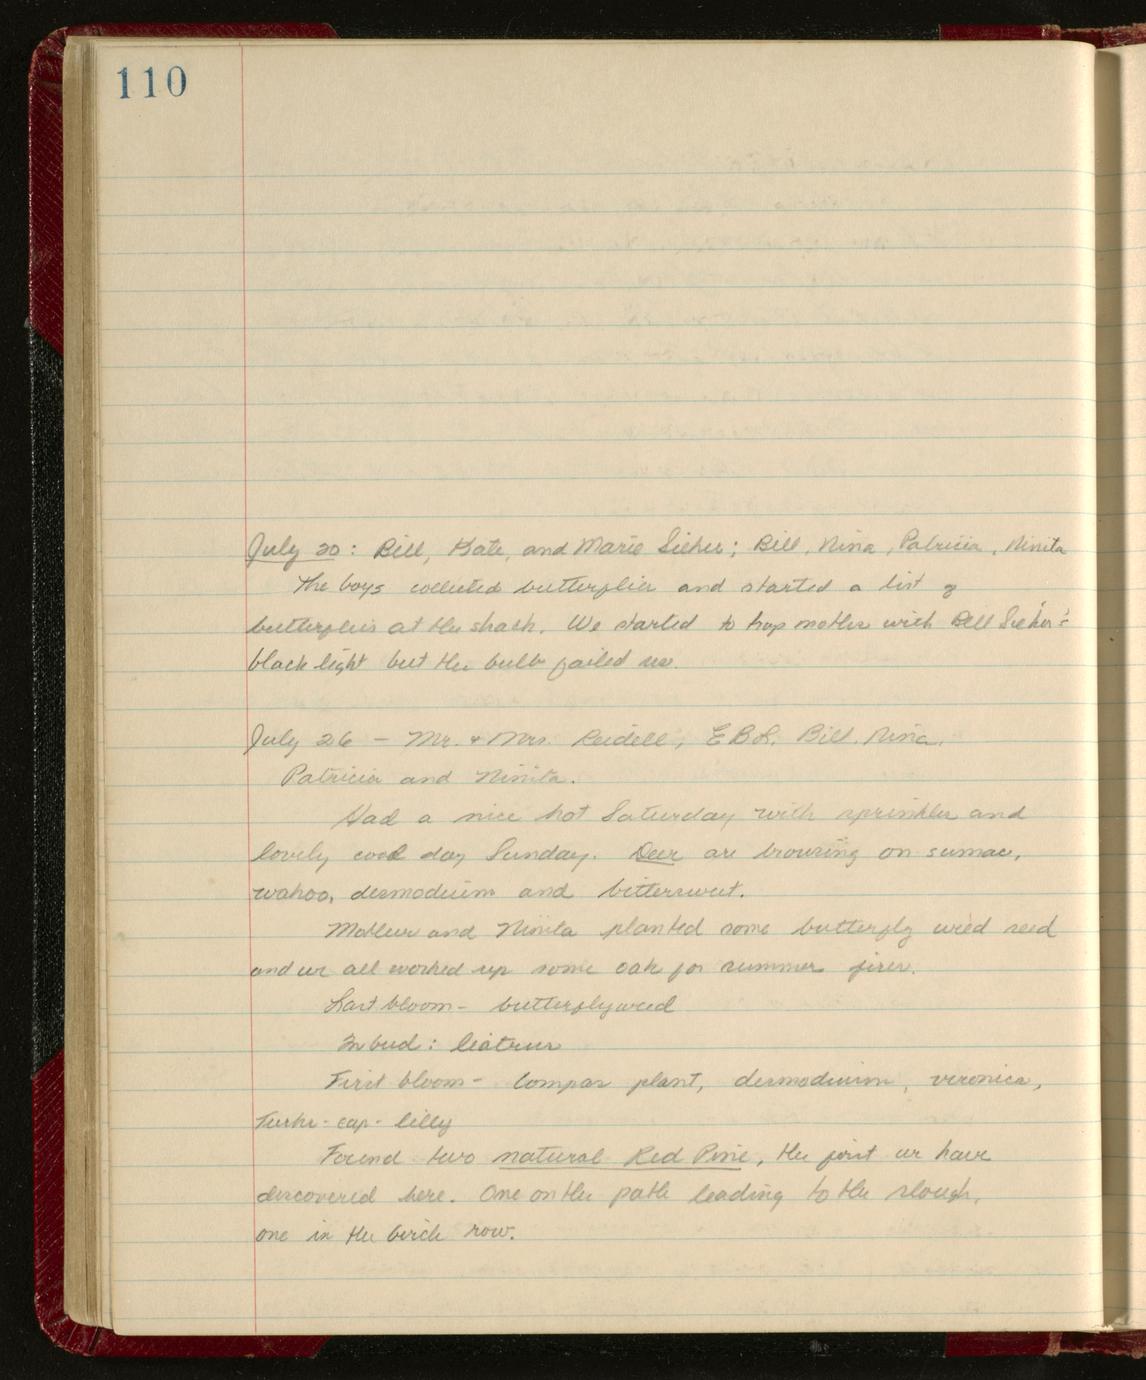 110
July 20: Bill, Kate, and Marie Sieker; Bill, Nina, Patricia, Ninita
The boys collected butterflies and started a list of
butterflies at the shack. We started to trap mothes with Bill Sieker's
black light but the bulb failed us.
July 26 - Mr. & Mrs. Reidell, EBL. Bill. Nina.
Patricia and Ninita.
Had a nice hot Saturday with sprinkles and
lovely cool day Sunday. Deer are browzing on sumac,
wahoo, desmodium and bittersweet.
Mother and Ninita planted some butterfly weed seed
and we all worked up some oak for summer fires.
Last bloom - butterflyweed
In bud: liatrus
First bloom - Compas plant, desmodium, veronica,
Turks-cap-lilly
Found two natural Red Pine, the first we have
discovered here. One on the path leading to the slough,
one in the birch row.